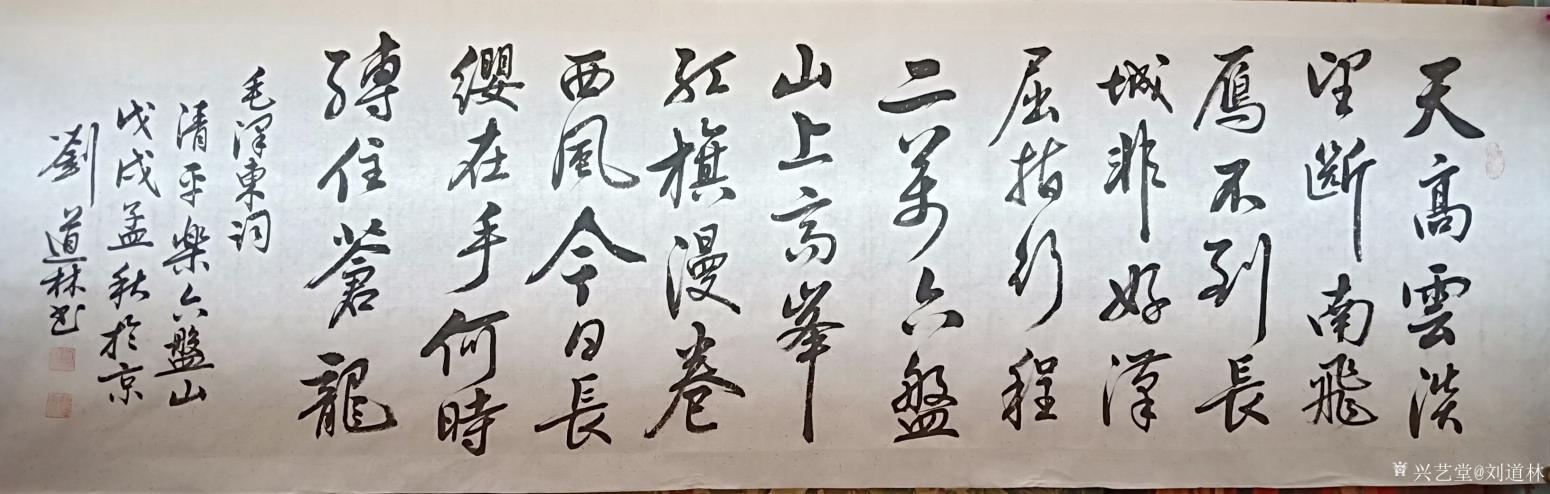 天高雲淡
望斷南飛
鴈不到長
城非好漢
屈指行程
二萬六盤
山上高峯
紅旗漫卷
西風今日長
纓在手何時
縛住蒼龍
毛澤東詞
清平樂六盤山
戊戌孟秋於京
劉道林书
兴艺堂@刘道林